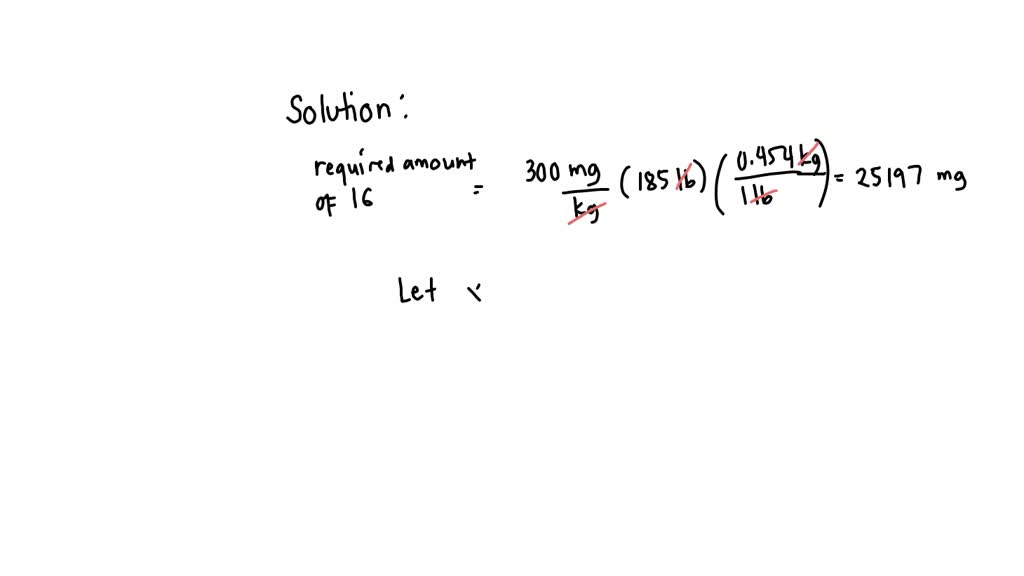 Solution:
required amount of 16 = 300 mg/kg (185 lb) (0.454 kg/1 lb) = 25197 mg
Let x